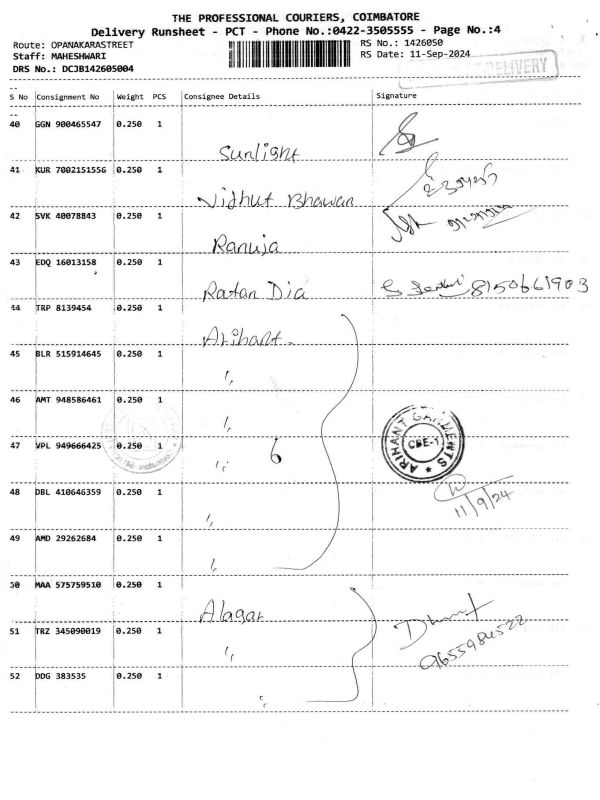 THE PROFESSIONAL COURIERS, COIMBATORE
Delivery Runsheet - PCT - Phone No.:0422-3505555 - Page No.:4
Route: OPANAKARASTREET
Staff: MAHESHWARI
DRS No.: DCJB142605004
RS No.: 1426050
RS Date: 11-Sep-2024
DELIVERY
S No Consignment No Weight PCS Consignee Details Signature
40 GGN 900465547 0.250 1 Sunlight
41 KUR 7002151556 0.250 1 Vidhut Bhawan
42 SVK 40078843 0.250 1 Ranuja
43 EDQ 16013158 0.250 1 Ratan Dia 8150661903
44 TRP 8139454 0.250 1 Arihant
45 BLR 515914645 0.250 1 ,,
46 AMT 948586461 0.250 1 ,,
47 VPL 949666425 0.250 1 ,, 6
ARIHANT GARMENTS
CBE-1
48 DBL 410646359 0.250 1 ,,
11/9/24
49 AMD 29262684 0.250 1 ,,
50 MAA 575759510 0.250 1 Alagar
51 TRZ 345090019 0.250 1 ,,
9655984522
52 DDG 383535 0.250 1 ,,